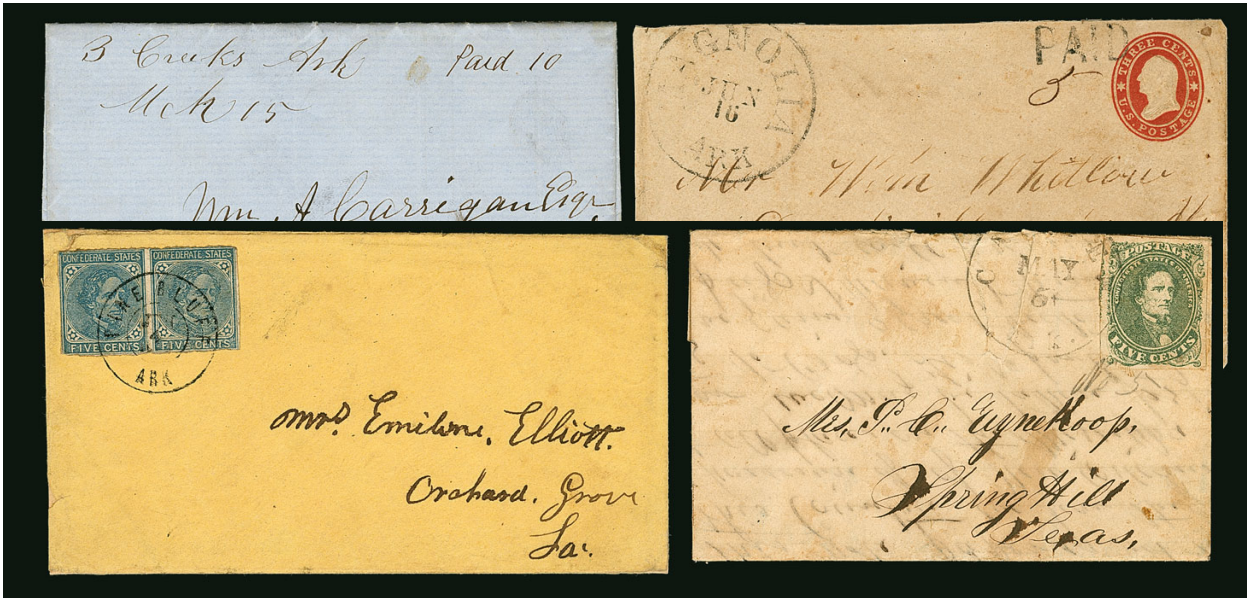 3 Creeks Ark Paid 10
Mch 15
Wm A Carrigan Esqr
MAGNOLIA
JUN
16
ARK
PAID
5
THREE CENTS
U.S. POSTAGE
Mr Wm Whitlow
CONFEDERATE STATES CONFEDERATE STATES
FIVE CENTS FIVE CENTS
PINE BLUFF
ARK
Mrs. Emiline, Elliott.
Orchard, Grove
La.
MAY
6
POSTAGE
FIVE CENTS
Mrs, P. C.,
Spring Hill
Texas,